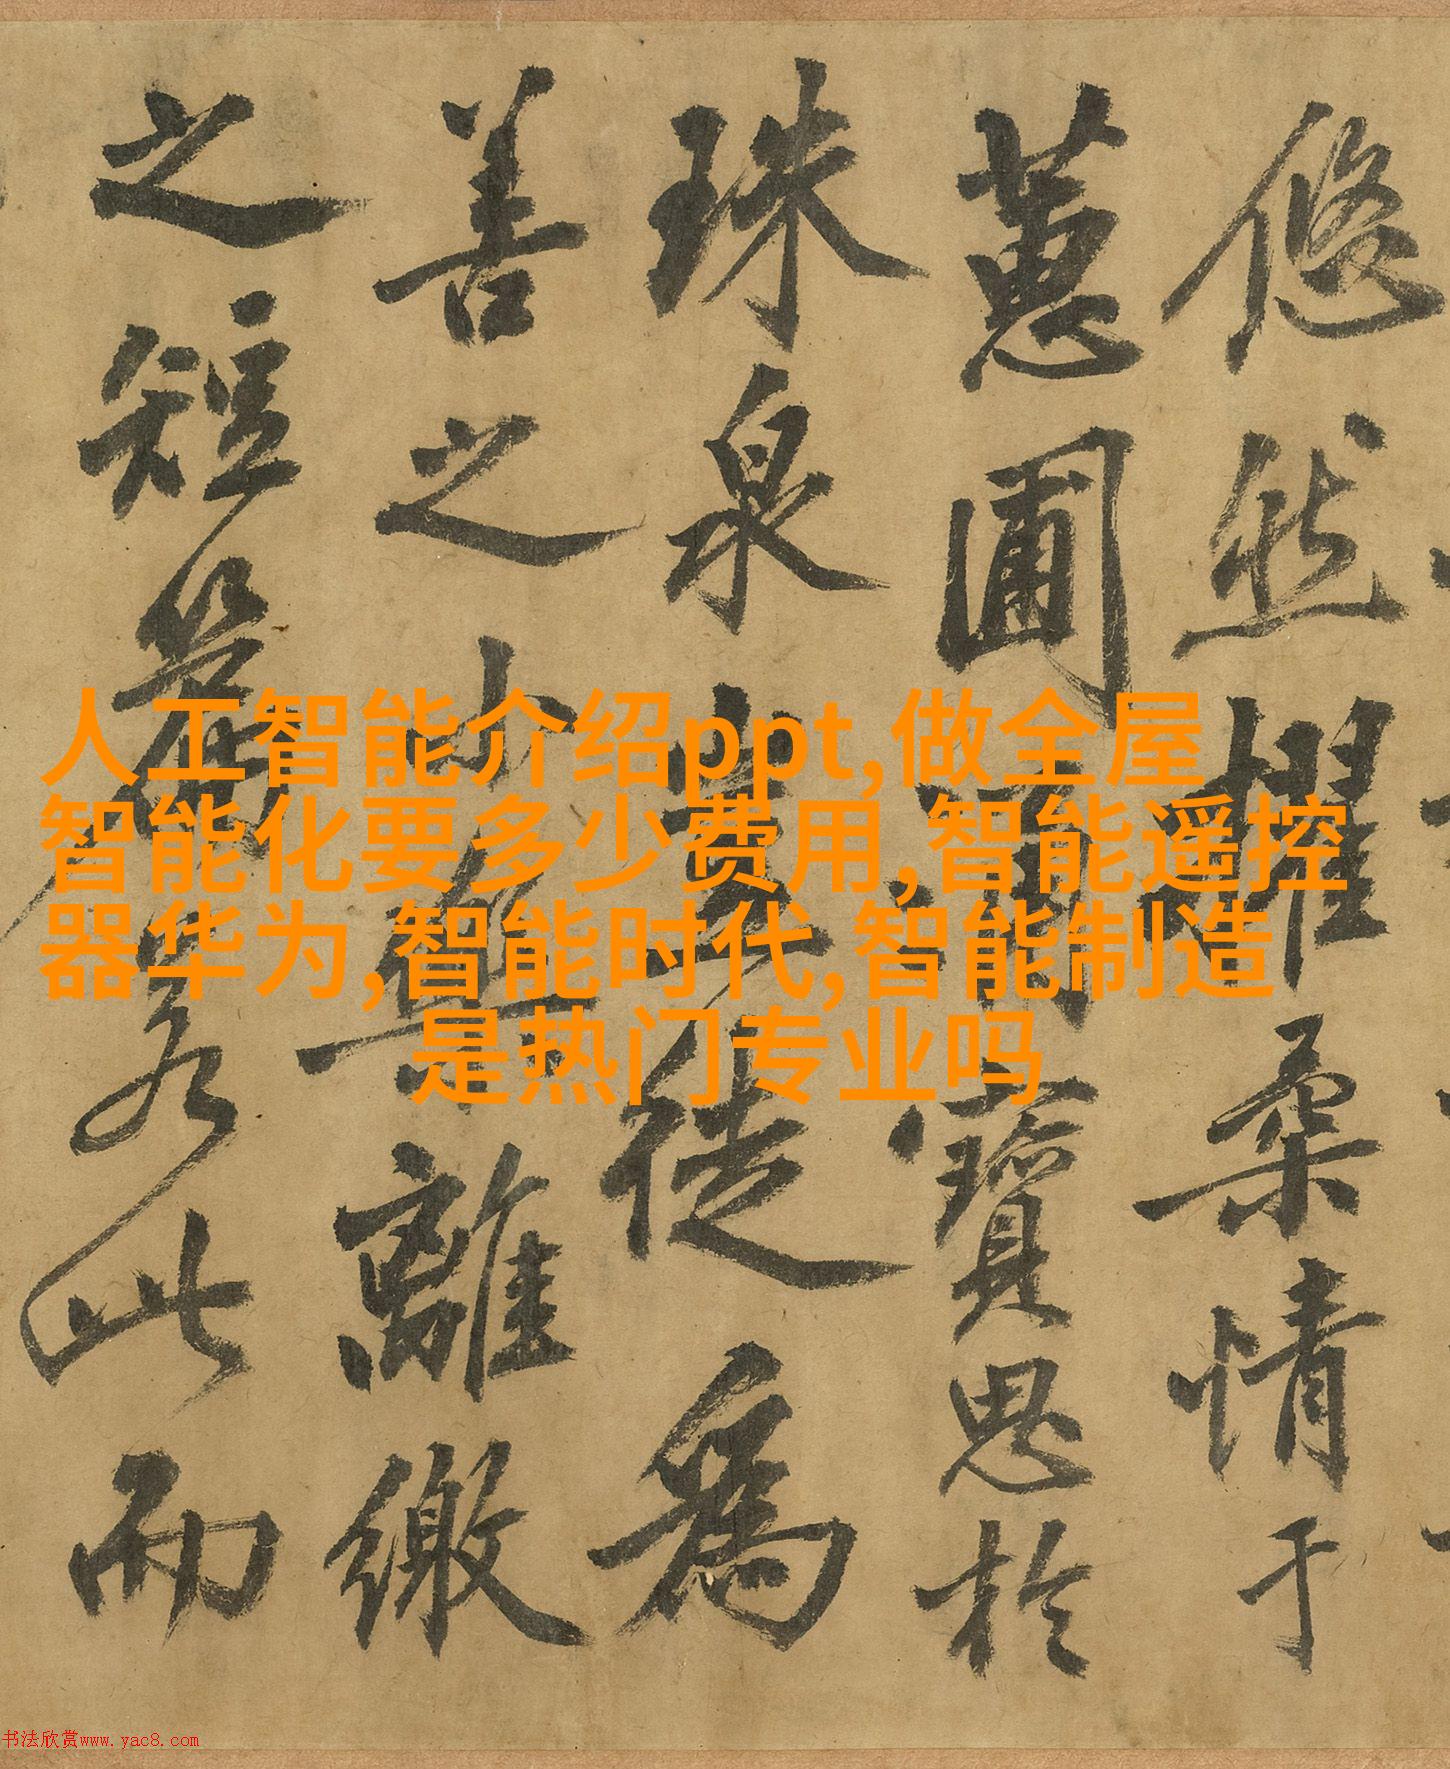 悠然桑情于
蕙圃寶思於
珠泉徒為
善之離繳
之短此而
人工智能介绍ppt,做全屋
智能化要多少费用,智能遥控
器华为,智能时代,智能制造
是热门专业吗
书法欣赏www.yac8.com